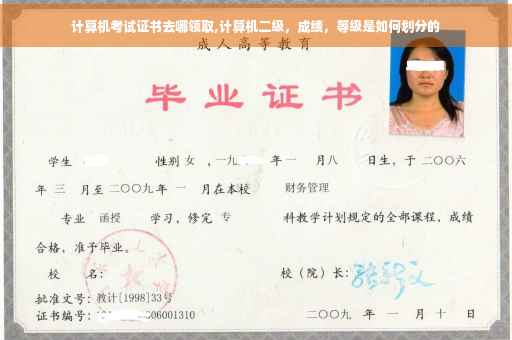 计算机考试证书去哪领取,计算机二级，成绩，等级是如何划分的
成人高等教育
毕业证书
学生 性别 女 ，一九 年 一 月 八 日生，于 二〇〇六
年 三 月至 二〇〇九 年 一 月在本校 财务管理
专业 函授 学习，修完 专 科教学计划规定的全部课程，成绩
合格，准予毕业。
校 名： 校（院）长：
批准文号：教计[1998]33号
证书编号： 06001310 二〇〇九 年 一 月 十 日